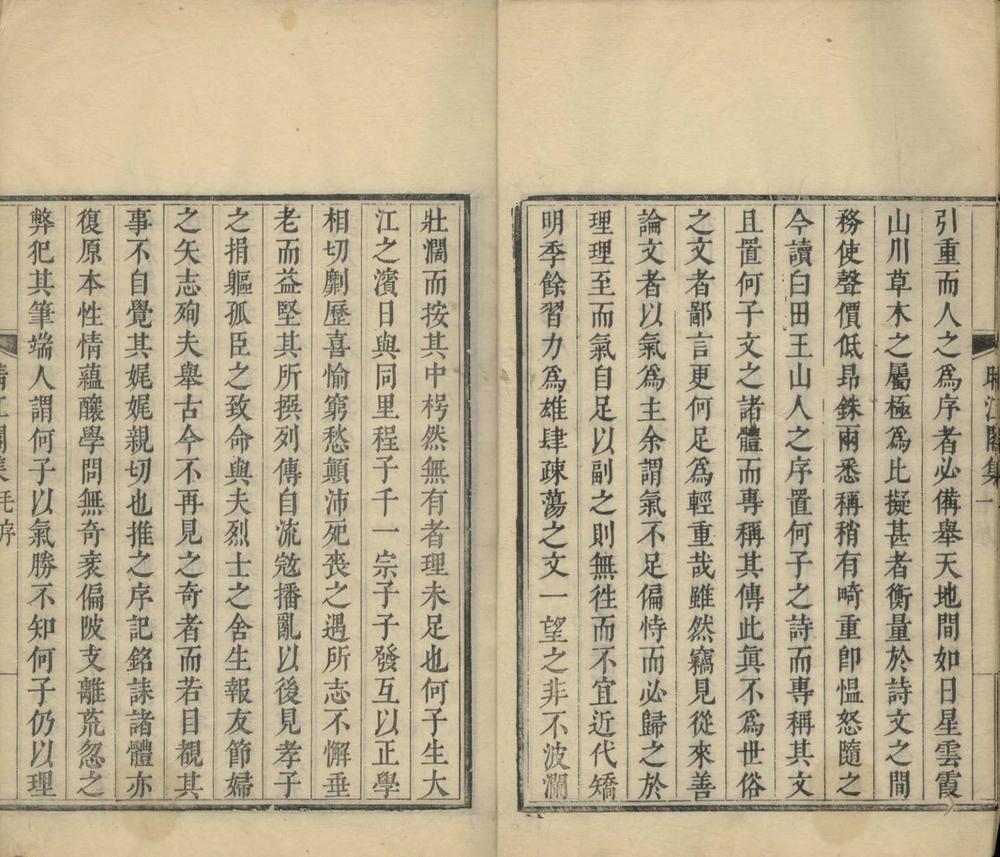 晴江閣集
一
引重而人之爲序者必備舉天地間如日星雲霞
山川草木之屬極爲比擬甚者衡量於詩文之間
務使聲價低昻銖兩悉稱稍有畸重卽愠怒隨之
今讀白田王山人之序置何子之詩而專稱其文
且置何子文之諸體而專稱其傳此眞不爲世俗
之文者鄙言更何足爲輕重哉雖然竊見從來善
論文者以氣爲主余謂氣不足偏恃而必歸之於
理理至而氣自足以副之則無徃而不宜近代矯
明季餘習力爲雄肆疎蕩之文一望之非不波瀾
壯濶而按其中枵然無有者理未足也何子生大
江之濱日與同里程子千一宗子子發互以正學
相切劘歷喜愉窮愁顚沛死喪之遇所志不懈垂
老而益堅其所撰列傳自流宼播亂以後見孝子
之捐軀孤臣之致命與夫烈士之舍生報友節婦
之矢志殉夫舉古今不再見之奇者而若目覩其
事不自覺其娓娓親切也推之序記銘誄諸體亦
復原本性情蘊釀學問無奇衺偏陂支離荒忽之
弊犯其筆端人謂何子以氣勝不知何子仍以理
晴江閣集
序